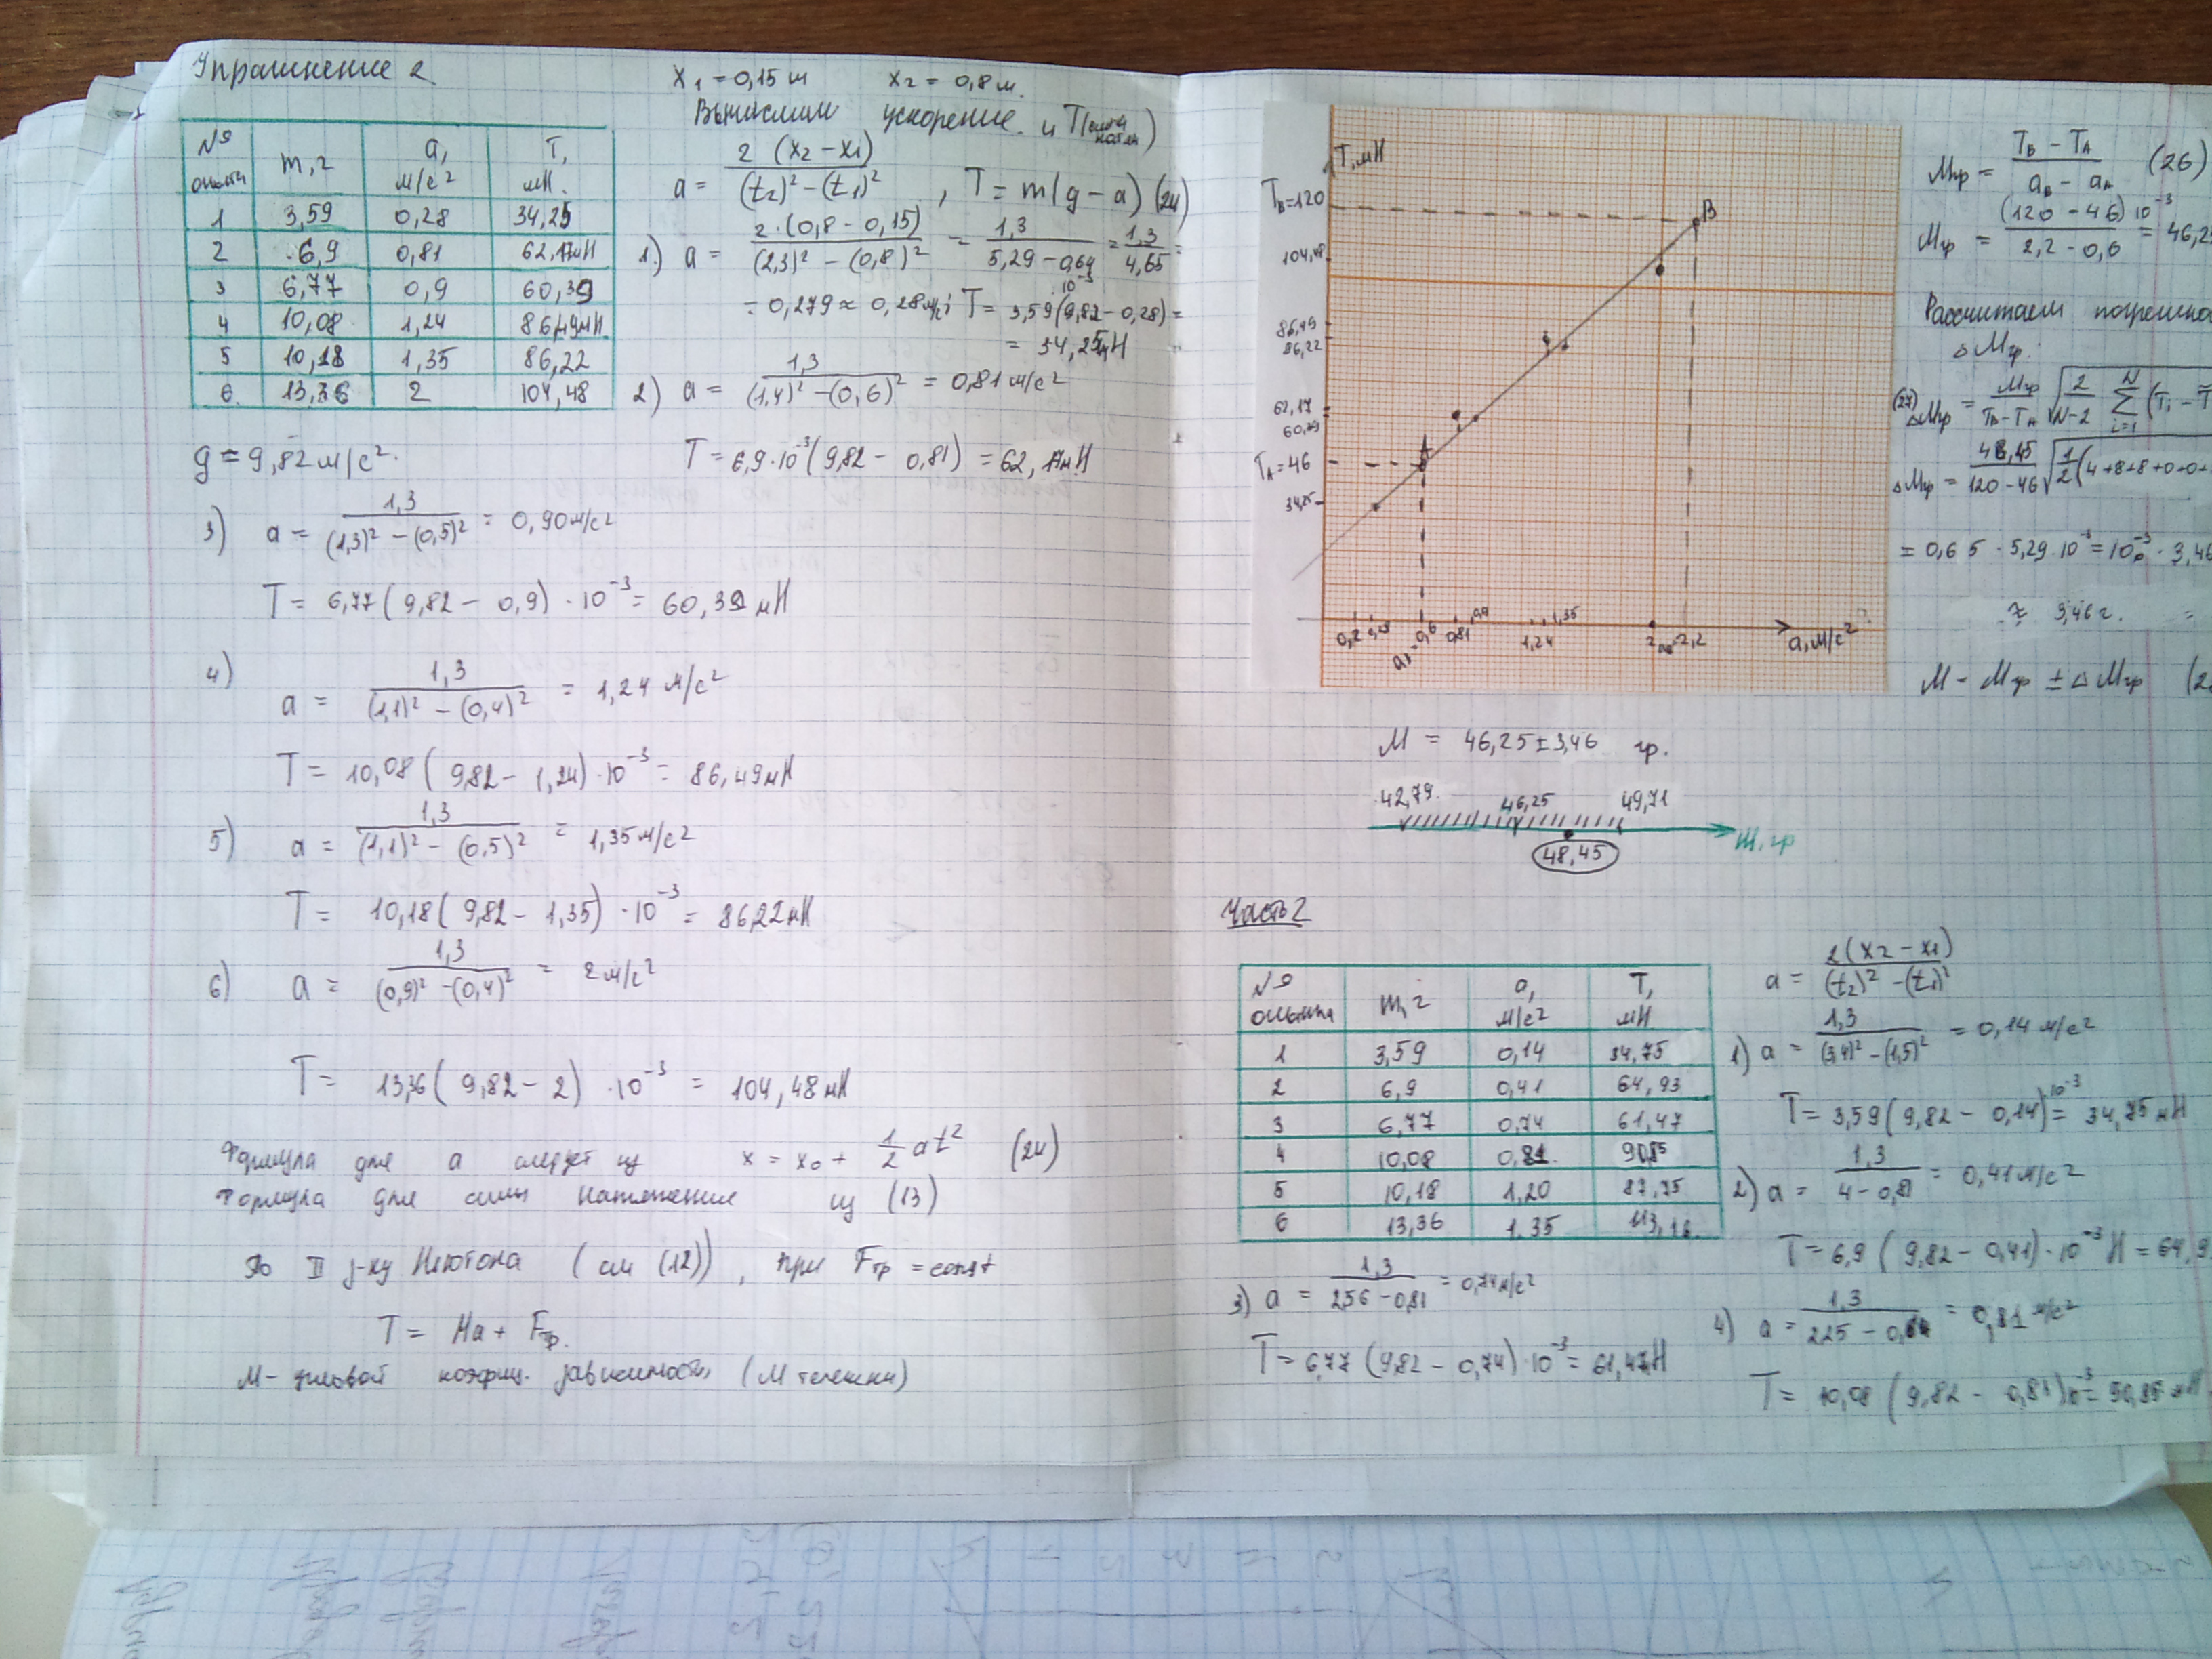 Упражнение 2
x₁ = 0,15 м x₂ = 0,8 м.
Вычислим ускорение и T(силы натяж)
№ опыта m, г a, м/с² T, мН.
1 3,59 0,28 34,25
2 6,9 0,81 62,17мН
3 6,77 0,9 60,39
4 10,08 1,24 86,49мН
5 10,18 1,35 86,22
6. 13,36 2 104,48
g = 9,82 м/с².
a = 2 (x₂ – x₁) / (t₂)² – (t₁)² , T = m(g – a) (24)
1.) a = 2·(0,8 – 0,15) / (2,3)² – (0,8)² = 1,3 / 5,29 – 0,64 = 1,3 / 4,65 =
= 0,279 ≈ 0,28 м/с²; T = 3,59(9,82 – 0,28)·10⁻³ =
= 34,25мН
2) a = 1,3 / (1,4)² – (0,6)² = 0,81 м/с²
T = 6,9·10⁻³(9,82 – 0,81) = 62,17мН
3) a = 1,3 / (1,3)² – (0,5)² = 0,90 м/с²
T = 6,77(9,82 – 0,9)·10⁻³ = 60,39 мН
4) a = 1,3 / (1,1)² – (0,4)² = 1,24 м/с²
T = 10,08(9,82 – 1,24)·10⁻³ = 86,49мН
5) a = 1,3 / (1,1)² – (0,5)² = 1,35 м/с²
T = 10,18(9,82 – 1,35)·10⁻³ = 86,22мН
6) a = 1,3 / (0,9)² – (0,4)² = 2 м/с²
T = 13,36(9,82 – 2)·10⁻³ = 104,48 мН
Формула для a следует из x = x₀ + 1/2 at² (24)
Формула для силы натяжения из (13)
По II з-ну Ньютона (см (12)), при Fтр = const
T = Ma + Fтр.
M – угловой коэфиц. зависимости (M тележки)
T, мН
Tв=120
104,48
86,49
86,22
62,17
60,39
Tа=46
34,25
A
B
0,2 0,28 aа=0,6 0,81 0,9 1,24 1,35 2 aв=2,2 a, м/с²
Mгр = Tв – Tа / aв – aа (26)
Mгр = (120 – 46)10⁻³ / 2,2 – 0,6 = 46,25
Рассчитаем
ΔMгр.
(27) ΔMгр = Mгр / Tв – Tа √ 2 / N–2 Σ N i=1 (Tᵢ – T
ΔMгр = 48,45 / 120 – 46 √ 1/2 (4+8+8+0+0+
= 0,65 · 5,29·10⁻³ = 10⁻³ · 3,46
≈ 3,46 г. =
M = Mгр ± ΔMгр (2
M = 46,25 ± 3,46 гр.
42,79. 46,25 49,71
48,45
m, гр
Часть 2
№ опыта m, г a, м/с² T, мН
1 3,59 0,14 34,75
2 6,9 0,41 64,93
3 6,77 0,74 61,47
4 10,08 0,81. 90,85
5 10,18 1,20 87,75
6 13,36 1,35 113,16.
a = 2(x₂ – x₁) / (t₂)² – (t₁)²
1) a = 1,3 / (3,4)² – (1,5)² = 0,14 м/с²
T = 3,59(9,82 – 0,14)10⁻³ = 34,75 мН
2) a = 1,3 / 4 – 0,81 = 0,41 м/с²
T = 6,9(9,82 – 0,41)·10⁻³ Н = 64,9
3) a = 1,3 / 2,56 – 0,81 = 0,74 м/с²
T = 6,77(9,82 – 0,74)·10⁻³ = 61,47Н
4) a = 1,3 / 2,25 – 0,64 = 0,81 м/с²
T = 10,08(9,82 – 0,81)10⁻³ = 90,85 мН